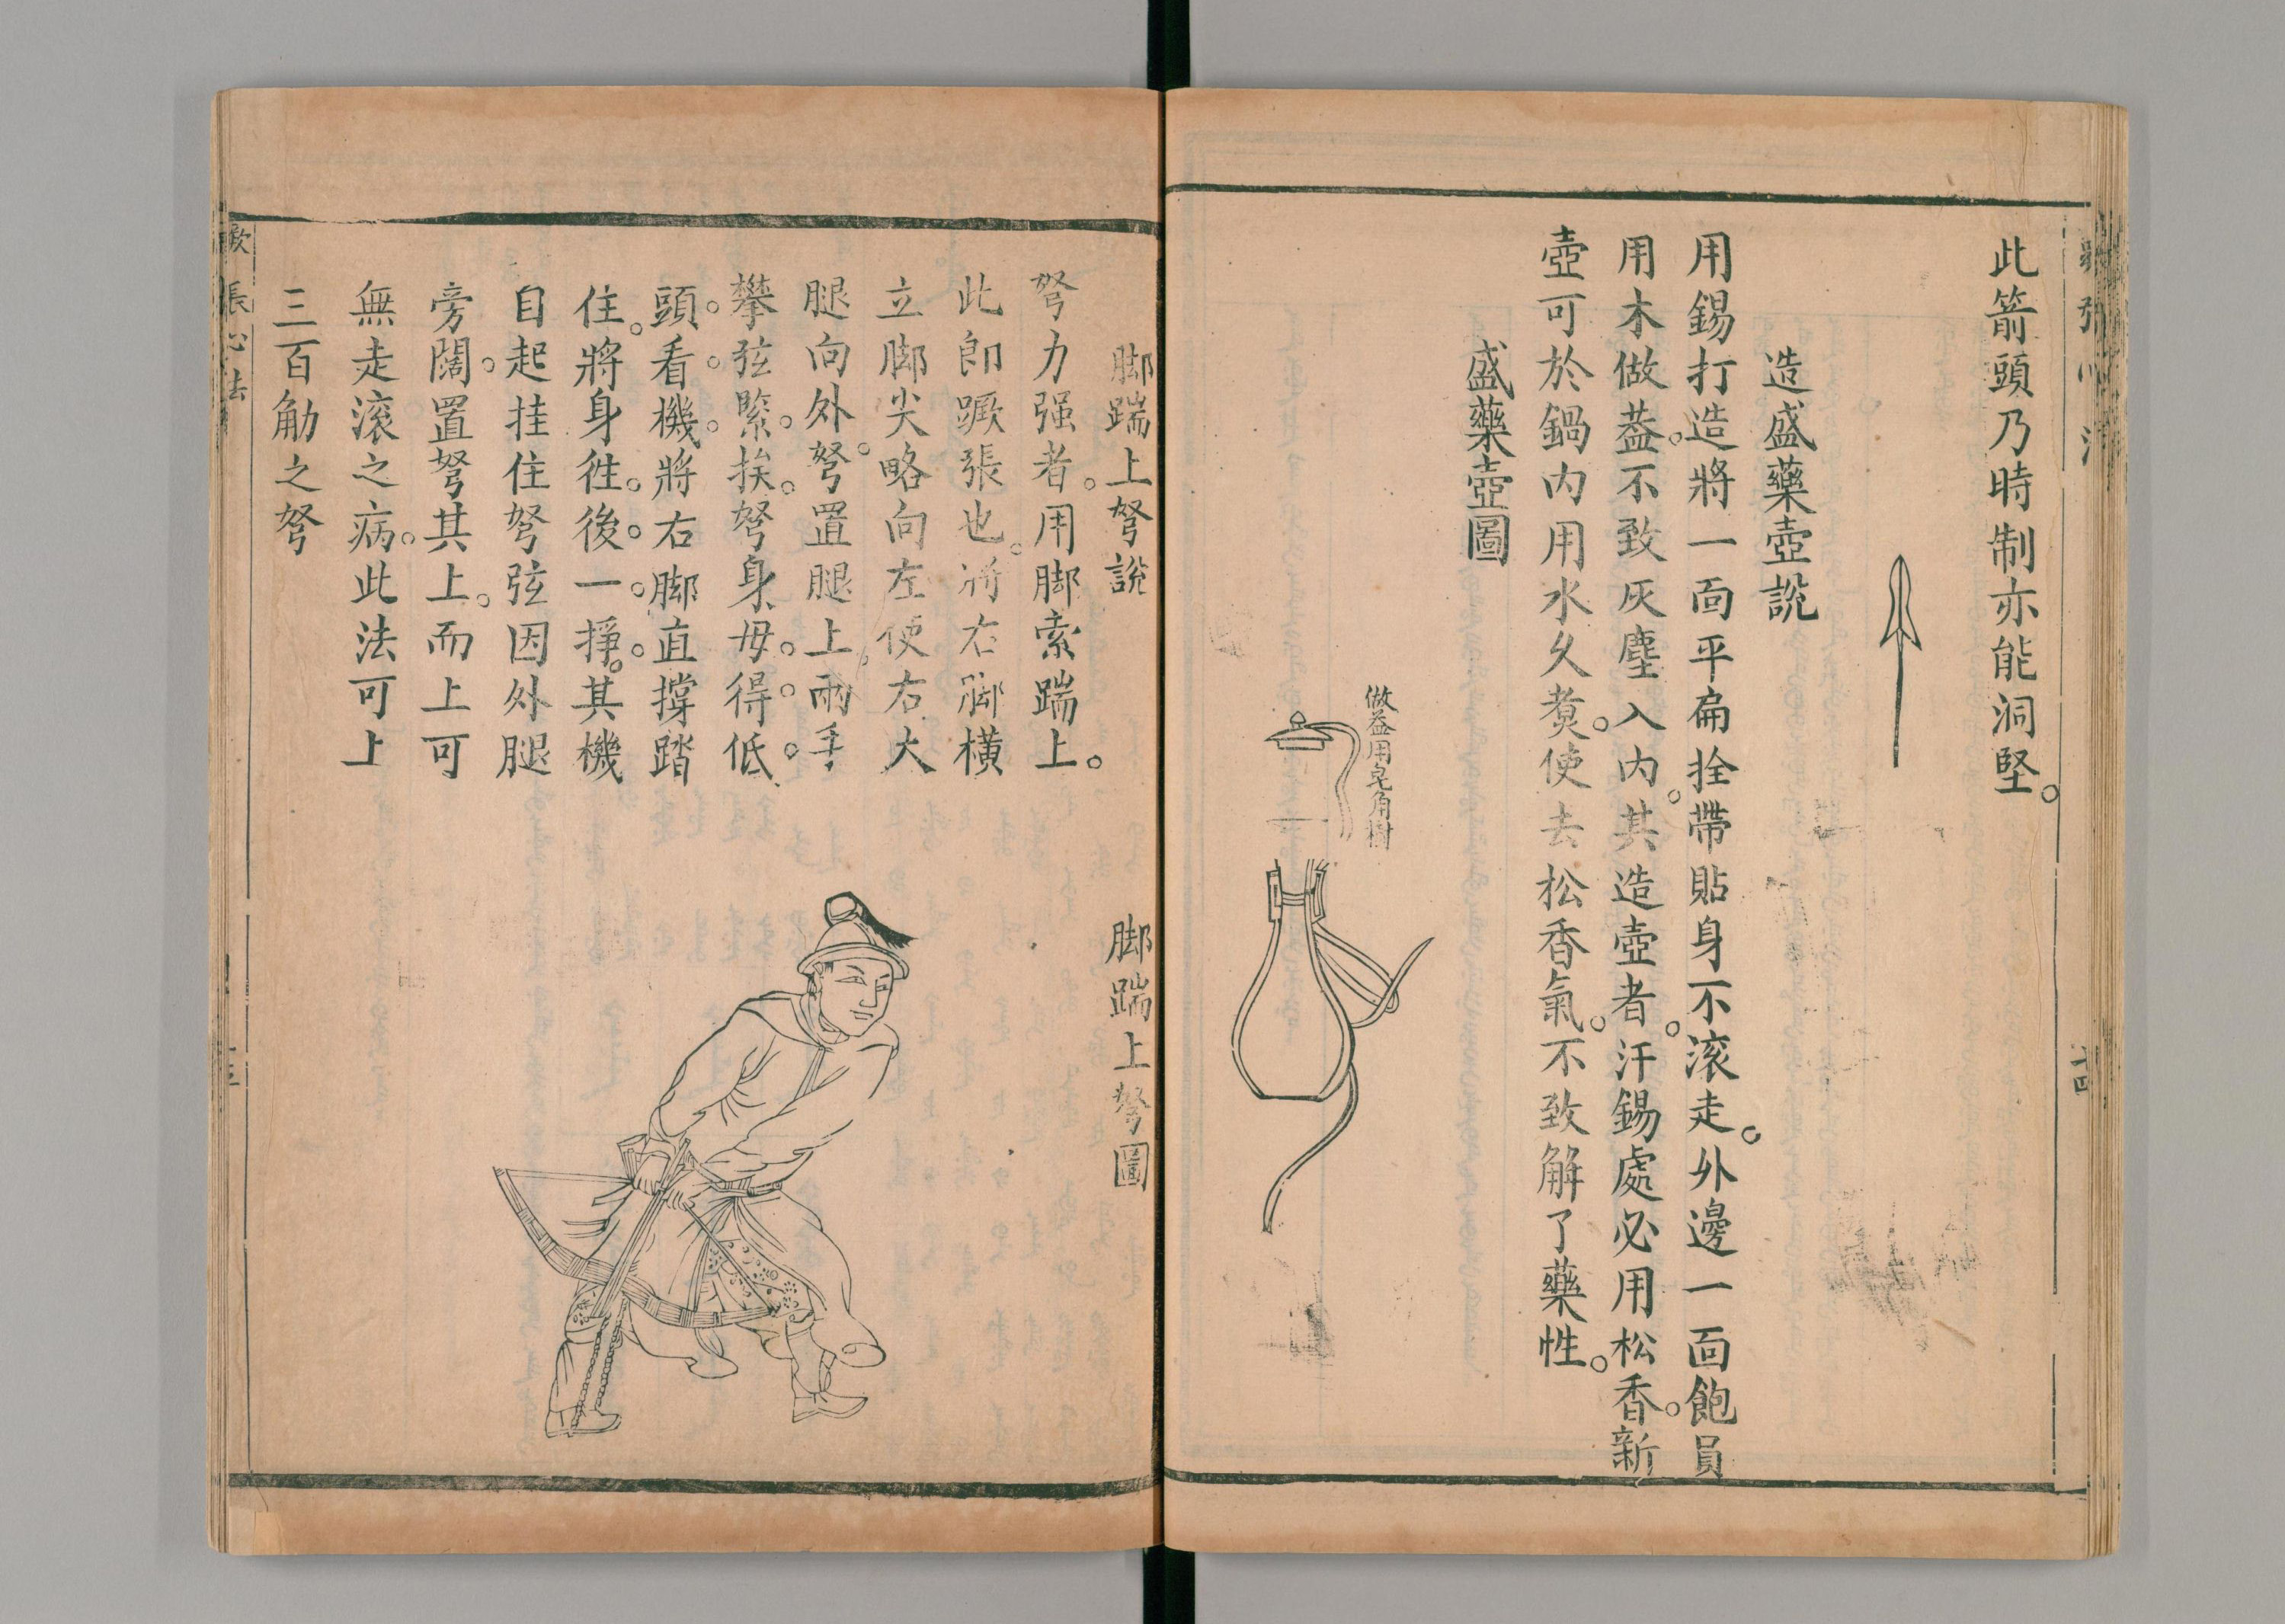 此箭頭乃時制亦能洞堅。
造盛藥壺說
用錫打造將一面平扁拴帶貼身不滚走。外邊一面飽員
用木做葢。不致灰塵入內。其造壺者。汗錫處必用松香。新
壺可於鍋內用水久煑。使去松香氣。不致解了藥性。
盛藥壺圖
做葢用皂角樹
十四
脚踹上弩說
弩力强者。用脚索踹上。
此卽蹶張也。將右脚橫
立脚尖略向左使右大
腿向外。弩置腿上兩手
攀弦緊。挨。弩身。毋。得。低。
頭。看。機。將右脚直撑踏
住。將身徃。後。一。掙。其機
自起挂住弩弦因外腿
旁闊。置弩其上。而上可
無走滚之病。此法可上
三百觔之弩
脚踹上弩圖
蹶張心法